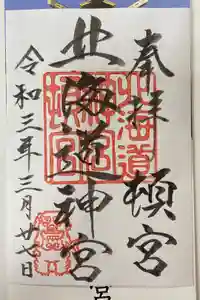 奉拝 頓宮
北海道神宮
令和三年三月廿七日
北海道
宮